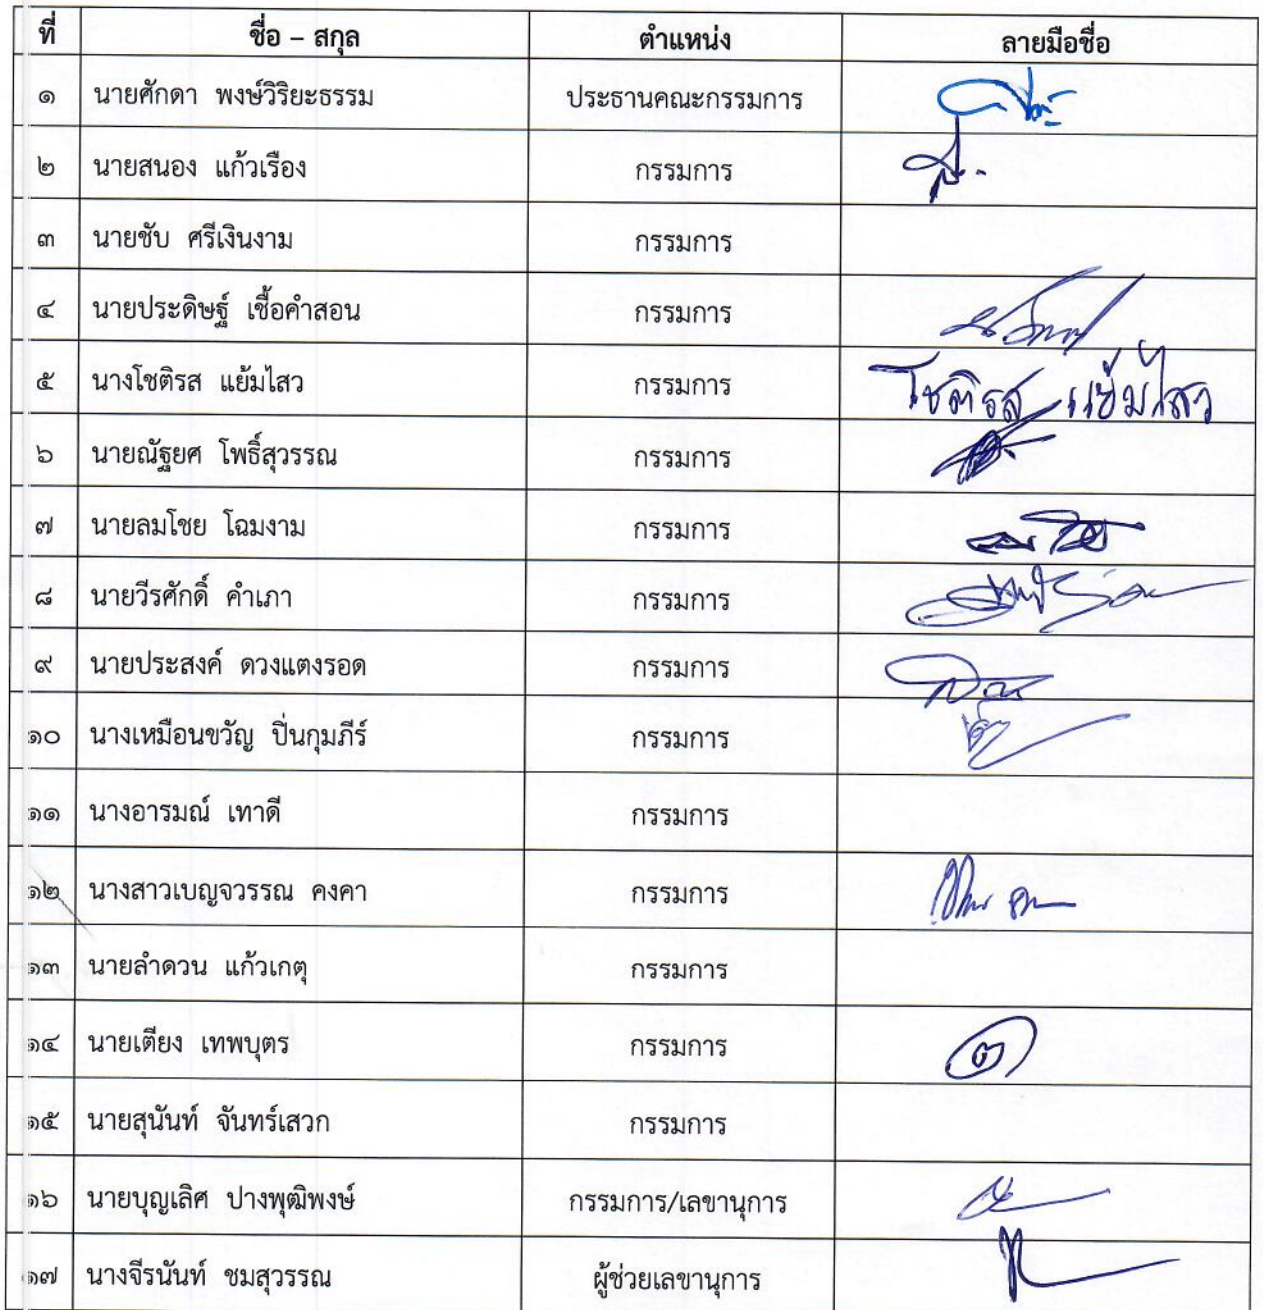 ที่ ชื่อ – สกุล ตำแหน่ง ลายมือชื่อ
๑ นายศักดา พงษ์วิริยะธรรม ประธานคณะกรรมการ
๒ นายสนอง แก้วเรือง กรรมการ
๓ นายชับ ศรีเงินงาม กรรมการ
๔ นายประดิษฐ์ เชื้อคำสอน กรรมการ
๕ นางโชติรส แย้มไสว กรรมการ โชติรส แย้มไสว
๖ นายณัฐยศ โพธิ์สุวรรณ กรรมการ
๗ นายลมโชย โฉมงาม กรรมการ
๘ นายวีรศักดิ์ คำเภา กรรมการ
๙ นายประสงค์ ดวงแตงรอด กรรมการ
๑๐ นางเหมือนขวัญ ปิ่นกุมภีร์ กรรมการ
๑๑ นางอารมณ์ เทาดี กรรมการ
๑๒ นางสาวเบญจวรรณ คงคา กรรมการ
๑๓ นายลำดวน แก้วเกตุ กรรมการ
๑๔ นายเตียง เทพบุตร กรรมการ
๑๕ นายสุนันท์ จันทร์เสวก กรรมการ
๑๖ นายบุญเลิศ ปางพุฒิพงษ์ กรรมการ/เลขานุการ
๑๗ นางจีรนันท์ ชมสุวรรณ ผู้ช่วยเลขานุการ